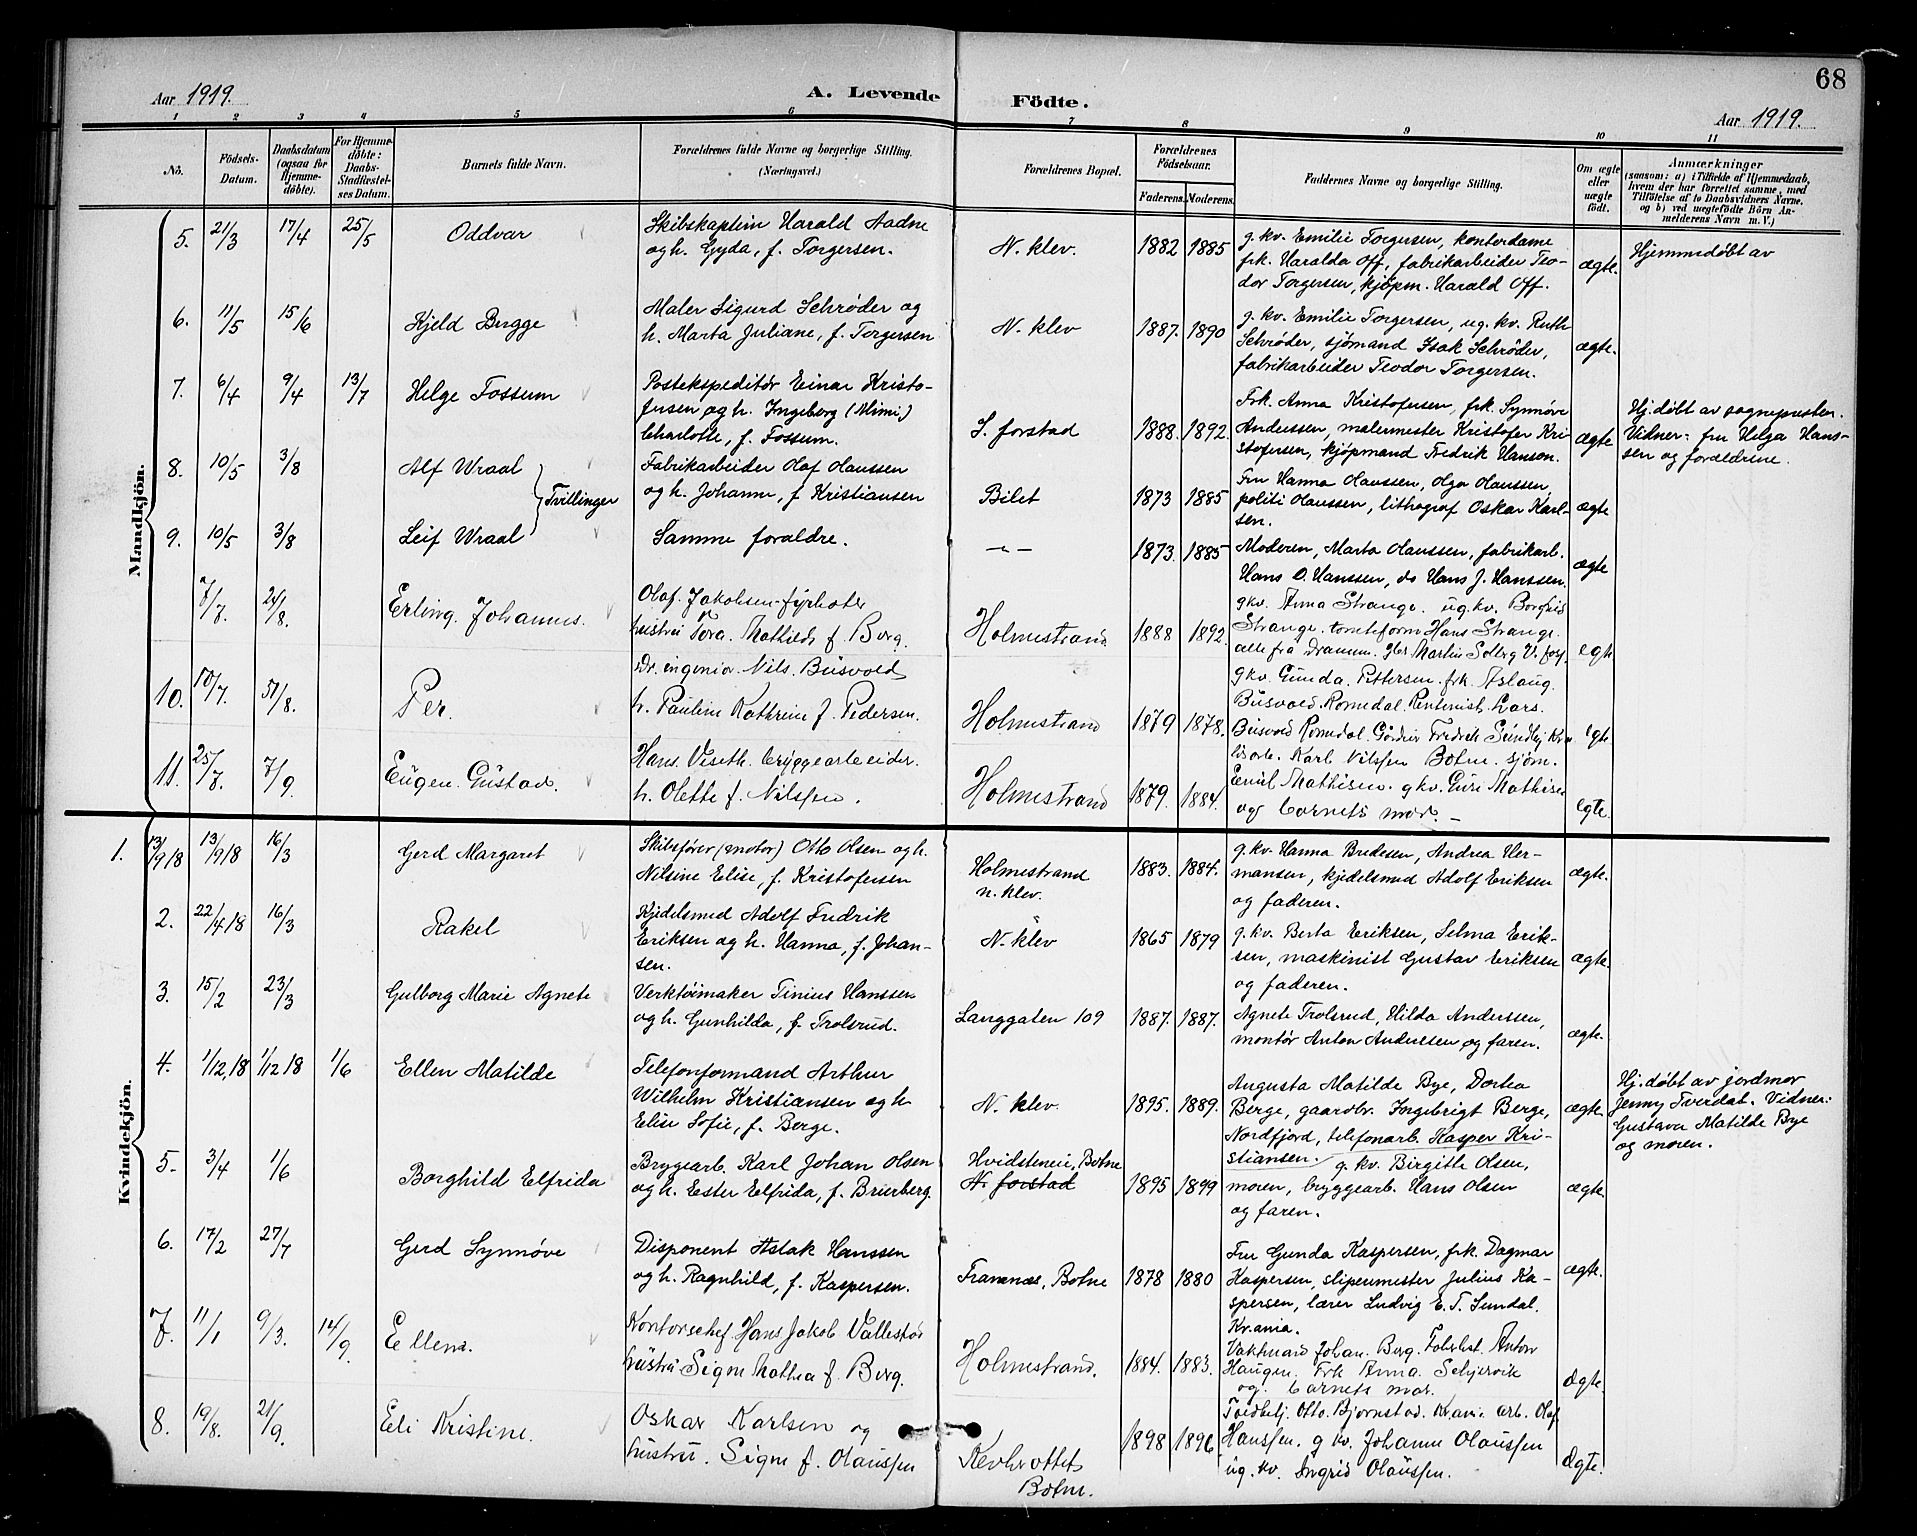 68
Aar 1919.
A. Levende Födte.
Aar 1919.
1 2 3 4 5 6 7 8 9 10 11
No.
Födsels-Datum.
Daabsdatum (ogsaa for Hjemme-döbte).
For Hjemme-döbte: Daabs-Stadfæstel-ses Datum.
Barnets fulde Navn.
Forældrenes fulde Navne og borgerlige Stilling.
(Næringsvei.)
Forældrenes Bopæl.
Forældrenes Födselsaar.
Faderens. Moderens.
Faddernes Navne og borgerlige Stilling.
Om ægte eller uægte født.
Anmærkninger
(saasom: a) i Tilfælde af Hjemmedaab, hvem der har forrettet samme, med Tilföielse af to Daabsvidners Navne, og b) ved uægtefödte Börn An-melderens Navn m. V.)
Mandkjön.
5. 21/3 17/4 25/5 Oddvar
Skibskaptein Harald Aadne
og h. Gyda, f. Torgersen.
N. klev. 1882 1885
g. kv. Emilie Torgersen, kontordame
frk. Haralda Off, fabrikarbeider Teo-
dor Torgersen, kjøpm. Harald Off.
ægte.
Hjemmedøbt av
6. 11/5 15/6 Kjeld Brygge
Maler Sigurd Schrøder og
h. Marta Juliane, f. Torgersen
N. klev 1887. 1890
g. kv. Emilie Torgersen, ug. kv. Ruth
Schrøder, sjömand Isak Schrøder,
fabrikarbeider Teodor Torgersen.
ægte.
7. 6/4 9/4 13/7 Helge Fossum
Postekspeditör Einar Kristo-
fersen og h. Ingeborg (Mimi)
Charlotte, f. Fossum.
S. forstad 1888. 1892.
Frk. Anna Kristofersen, frk. Synnöve
Anderssen, malermester Kristofer Kri-
stofersen, kjöpmand Fredrik Hanson.
ægte
Hj. döbt av sognepresten.
Vidner: fru Helga Hans-
sen og forældrene.
8. 10/5 3/8 Alf Wraal
Tvillinger
Fabrikarbeider Olaf Olaussen
og h. Johanne, f. Kristiansen
Bilet 1873 1885
Fru Hanna Olaussen, Olga Olaussen,
politi Olaussen, lithograf Oskar Karl-
sen.
ægte
9. 10/5 3/8 Leif Wraal
Samme foraldre.
— 1873. 1885
Moderen, Marta Olaussen, fabrikarb.
Hans O. Hanssen, do Hans J. Hanssen.
ægte
7/7. 24/8. Erling. Johannes.
Olaf. Jakobsen. fyrbøter
hustru Tora. Mathilde f. Berg.
Holmestrand 1888 1892.
gkv. Anna Strange. ug. kv. Borghild
Strange. Hans Strange.
alle fra Dramm. Martin Solberg V. fos
egte
10. 10/7. 31/8. Per.
Dr. ingeniør. Nils. Busvold
h. Pauline Kathrine f. Pedersen.
Holmestrand 1879 1878.
gkv. Gunda. Pettersen. frk. Aslaug.
Busvold. Romedal. Rentenist. Lars.
Busvold Romedal. Fredrik Sundby
egte
11. 25/7. 7/9. Eugen. Gustav.
Hans. Viseth. bryggearbeider.
h. Olette f. Nilssen.
Holmestrand 1879. 1884.
Karl Nilssen Botne. sjöm.
Emil Mathisen. gkv. Guri Mathisen
og barnets mor. —
egte.
Kvindekjön.
1. 13/9 18 13/9 18 16/3 Gerd Margaret
Skibsfører (motor) Otto Olsen og h.
Nilsine Elise, f. Kristofersen
Holmestrand
n. klev. 1883. 1884.
g. kv. Hanna Bredesen, Andrea Her-
mansen, kjedelsmed Adolf Eriksen
og faderen.
ægte.
2. 22/4 18 16/3 Rakel
Kjedelsmed Adolf Fredrik
Eriksen og h. Hanna, f. Johan-
sen.
N. klev 1865 1879
g. kv. Berta Eriksen, Selma Erik-
sen, maskinist Gustav Eriksen
og faderen.
ægte.
3. 15/2 23/3 Gulborg Marie Agnete
Verktöimaker Tinius Hanssen
og h. Gunhilda, f. Trolsrud.
Langgaten 109 1887. 1887.
Agnete Trolsrud, Hilda Anderssen,
montör Anton Anderssen og faren.
ægte.
4. 1/12, 18 1/12 18 1/6 Ellen Matilde
Telefonformand Arthur
Wilhelm Kristiansen og h.
Elise Sofie, f. Berge.
N. klev. 1895. 1889.
Augusta Matilde Bye, Dortea
Berge, gaardbr. Ingebrigt Berge,
Nordfjord, telefonarb. Kasper Kri-
stiansen.
ægte.
Hj. döbt av jordmor
Jenny Tverdal. Vidner:
Gustava Matilde Bye
og moren.
5. 3/4 1/6 Borghild Elfrida
Bryggearb. Karl Johan Olsen
og h. Ester Elfrida, f. Bruserberg
Hvidsteneie, Botne
N. forstad 1895 1899
g. kv. Birgitte Olsen,
moren, bryggearb. Hans Olsen
og faren.
ægte.
6. 17/2 27/7 Gerd Synnöve
Disponent Aslak Hanssen
og h. Ragnhild, f. Kaspersen.
Framnæs, Botne 1878 1880
Fru Gunda Kaspersen, frk. Dagmar
Kaspersen, slipermester Julius Ka-
spersen, lærer Ludvig E. T. Sundal.
Kr.ania.
ægte.
7. 11/1 9/3. 14/9. Ellena.
Kontorschef. Hans Jakob Vallestad
hustru Signe Mathea f. Berg.
Holmestrand. 1884. 1883.
Johan. Berg. Anton
Haugen. Frk Anna. Schjervik
og. barnets mor.
Ægte.
8. 19/8. 21/9. Eli Kristine.
Oskar Karlsen og
hustru. Signe f. Olaussen
Botne. 1898 1896
Otto. Bjørnstad. Kr.ania arb. Olaf
Hanssen. g kv. Johanne Olaussen
ug. kv. Ingrid Olaussen.
Ægte.